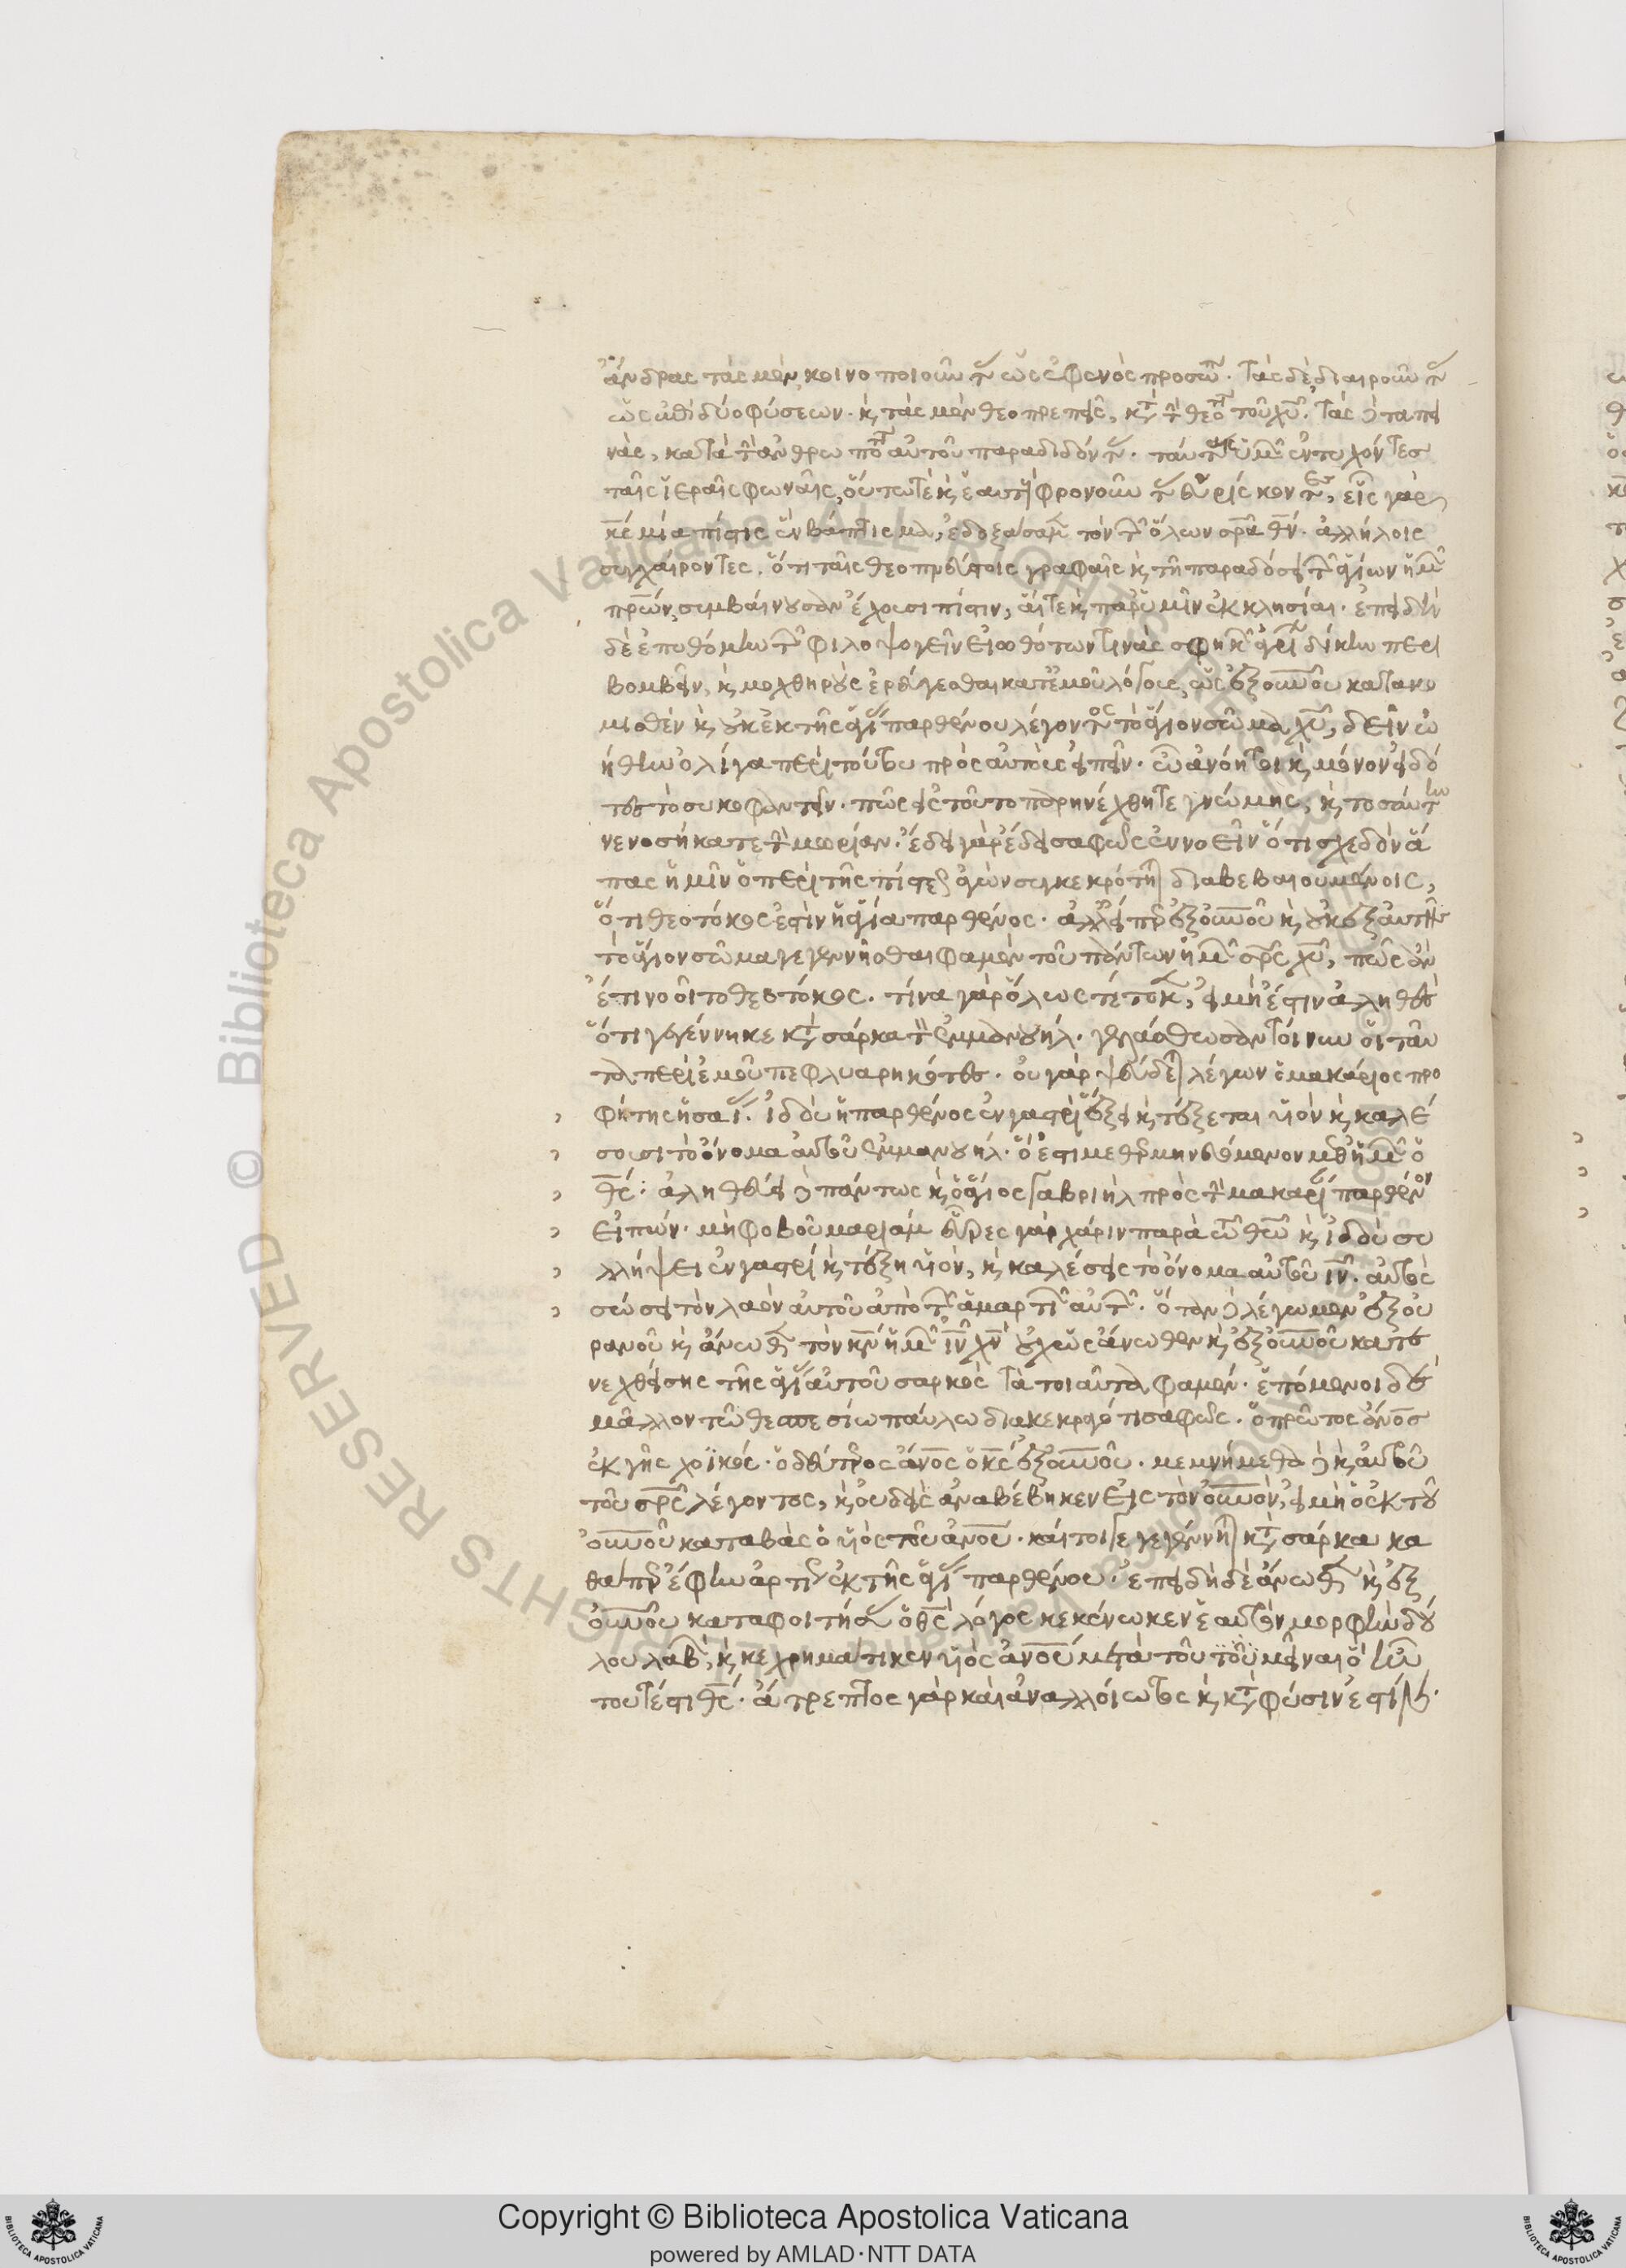 ἄνδρας τὰς μὲν κοινοποιοῦντ ὡς ἐφ ἑνὸς προσώπ· τὰς δὲ διαιροῦντ
ὡς ἐπὶ δύο φύσεων· κ τὰς μὲν θεοπρεπεῖς, κτ τ θεότητ τοῦ χυ. τὰς δὲ ταπει
νὰς, κατὰ τ ἀνθρωπότητ αὐτοῦ παραδιδόντ· ταύταις ὑμῶν ἐντυχόντες
ταῖς ἱεραῖς φωναῖς, οὕτω τὲ κ ἑαυτοὺς φρονοῦντ εὑρίσκοντες, εἷς γὰρ
κς μία πίστις ἓν βάπτισμα, ἐδοξάσαμ τὸν τῶν ὅλων σρα θν· ἀλλήλοις
συγχαίροντες, ὅτι ταῖς θεοπνεύστοις γραφαῖς κ τῆ παραδόσει τῶν ἁγίων ἡμῶν
πρων, συμβαίνουσαν ἔχουσι πίστιν, αἵ τε κ παρ ὑμῖν ἐκκλησίαι· ἐπειδὴ
δὲ ἐπυθόμην τῶν φιλοψογεῖν εἰωθότων τινὰς σφηκῶν ἀγρίων δίκην περι
βομβεῖν, κ μοχθηροὺς ἐρεύγεσθαι κατ ἐμοῦ λόγους, ὡς ἐξ οὐνοῦ κατακο
μισθὲν κ οὐκ ἐκ τῆς ἁγί παρθένου λέγοντος τὸ ἅγιον σῶμα χυ, δεῖν ὠ
ήθην ὀλίγα περὶ τούτου πρὸς αὐτοὺς εἰπεῖν· ὦ ἀνόητοι κ μόνον εἰδό
τες τὸ συκοφαντεῖν· πῶς εἰς τοῦτο παρηνέχθητε γνώμης, κ τοσαύτην
νενοσήκατε τ μωρίαν· ἔδει γὰρ ἔδει σαφῶς ἐννοεῖν ὅτι σχεδὸν ἅ
πας ἡμῖν ὁ περὶ τῆς πίστεως ἀγὼν συγκεκρότητ διαβεβαιουμένοις,
ὅτι θεοτόκος ἐστὶν ἡ ἁγία παρθένος· ἀλλ εἴπερ ἐξ οὐνοῦ κ οὐκ ἐξ αὐτῆς
τὸ ἅγιον σῶμα γεγεννῆσθαι φαμὲν τοῦ πάντων ἡμῶν σρς χυ, πῶς ἂν
ἔτι νοοῖτο θεοτόκος· τίνα γὰρ ὅλως τέτοκ, εἰ μὴ ἔστιν ἀληθὲς
ὅτι γεγέννηκε κτ σάρκα τ ἐμμανουήλ· γελάσθωσαν τοίνυν οἱ ταῦ
τα περὶ ἐμοῦ πεφλυαρηκότες· οὐ γὰρ ψεύδετ λέγων ὁ μακάριος προ
φήτης ἡσαΐ. ἰδοὺ ἡ παρθένος ἐν γαστρὶ ἕξει κ τέξεται υἱὸν κ καλέ
σουσι τὸ ὄνομα αὐτοῦ ἐμμανουήλ· ὅ ἐστι μεθερμηνευόμενον μεθ ἡμῶν ὁ
θς· ἀληθεύει δὲ πάντως κ ὁ ἅγιος γαβριὴλ πρὸς τ μακαρί παρθένον
εἰπών· μὴ φοβοῦ μαριάμ εὗρες γὰρ χάριν παρὰ τῶ θεῶ κ ἰδοὺ συ
λλήψει ἐν γαστρὶ κ τέξη υἱὸν, κ καλέσεις τὸ ὄνομα αὐτοῦ ιν. αὐτὸς
σώσει τὸν λαὸν αὐτοῦ ἀπὸ τῶν ἁμαρτιῶν αὐτῶν· ὅταν δὲ λέγωμεν ἐξ οὐ
ρανοῦ κ ἄνωθ τὸν κν ἡμῶν ιν χν οὐχ ὡς ἄνωθεν κ ἐξ οὐνοῦ κατε
νεχθείσης τῆς ἁγί αὐτοῦ σαρκὸς τὰ τοιαῦτα φαμέν· ἑπόμενοι δὲ
μᾶλλον τῶ θεσπεσίω παύλω διακεκραγότι σαφῶς· ὁ πρῶτος ἄνος
ἐκ γῆς χοϊκός· ὁ δεύτερος ἄνος ὁ κς ἐξ οὐνοῦ· μεμνήμεθα δὲ κ αὐτοῦ
τοῦ σρς λέγοντος, κ οὐδεὶς ἀναβέβηκεν εἰς τὸν οὐνον, εἰ μὴ ὁ ἐκ τοῦ
οὐνοῦ καταβὰς ὁ υἱὸς τοῦ ἀνου· καίτοι γεγέννητ κτ σάρκα κα
θαπερ ἔφην ἀρτίως ἐκ τῆς ἁγί παρθένου· ἐπειδὴ δὲ ἄνωθ κ ἐξ
οὐνοῦ καταφοιτήσας ὁ θς λόγος κεκένωκεν ἑαυτὸν μορφὴν δού
λου λαβ, κ κεχρημάτικεν υἱὸς ἀνου μετὰ τοῦ τοῦ μεῖναι ὃ ἦν
τουτέστι θς· ἄτρεπτος γὰρ καὶ ἀναλλοίωτος κ κτ φύσιν ἐστὶν·
© Biblioteca Apostolica Vaticana ALL RIGHTS RESERVED
Copyright © Biblioteca Apostolica Vaticana
powered by AMLAD・NTT DATA